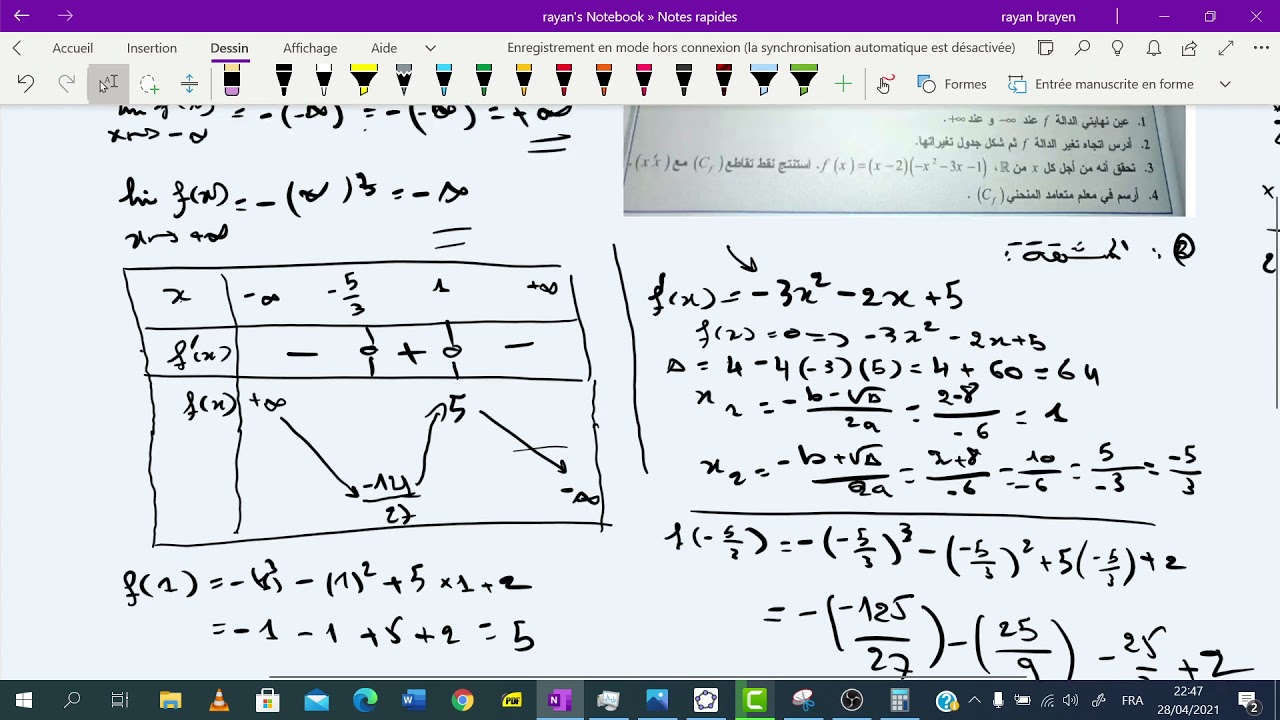 rayan's Notebook » Notes rapides
rayan brayen
Accueil Insertion Dessin Affichage Aide
Enregistrement en mode hors connexion (la synchronisation automatique est désactivée)
Formes
Entrée manuscrite en forme
= -(-∞) = -(-∞) = +∞
x→ -∞
lim f(x) = -(∞)³ = -∞
x→ +∞
1. عين نهايتي الدالة f عند ∞- و عند ∞+.
2. أدرس اتجاه تغير الدالة f ثم شكل جدول تغيراتها.
3. تحقق أنه من أجل كل x من ℝ، f(x)=(x-2)(-x²-3x-1). أستنتج نقط تقاطع (C_f) مع (xx').
4. أرسم في معلم متعامد المنحني (C_f).
x -∞ -5/3 1 +∞
f'(x) - 0 + 0 -
f(x) +∞ 5
-∞
27
f(1) = -(1)³ - (1)² + 5×1+2
= -1 - 1 + 5 + 2 = 5
②
f'(x) = -3x² - 2x + 5
f(x) = 0 => -3x² - 2x+5
Δ = 4 - 4(-3)(5) = 4 + 60 = 64
x₁ = -b-√Δ/2a = 2-8/-6 = 1
x₂ = -b+√Δ/2a = 2+8/-6 = 10/-6 = 5/-3 = -5/3
f(-5/3) = -(-5/3)³ - (-5/3)² + 5(-5/3) + 2
= -(-125/27) - (25/9) - 25 + 2
FRA
22:47
28/04/2021